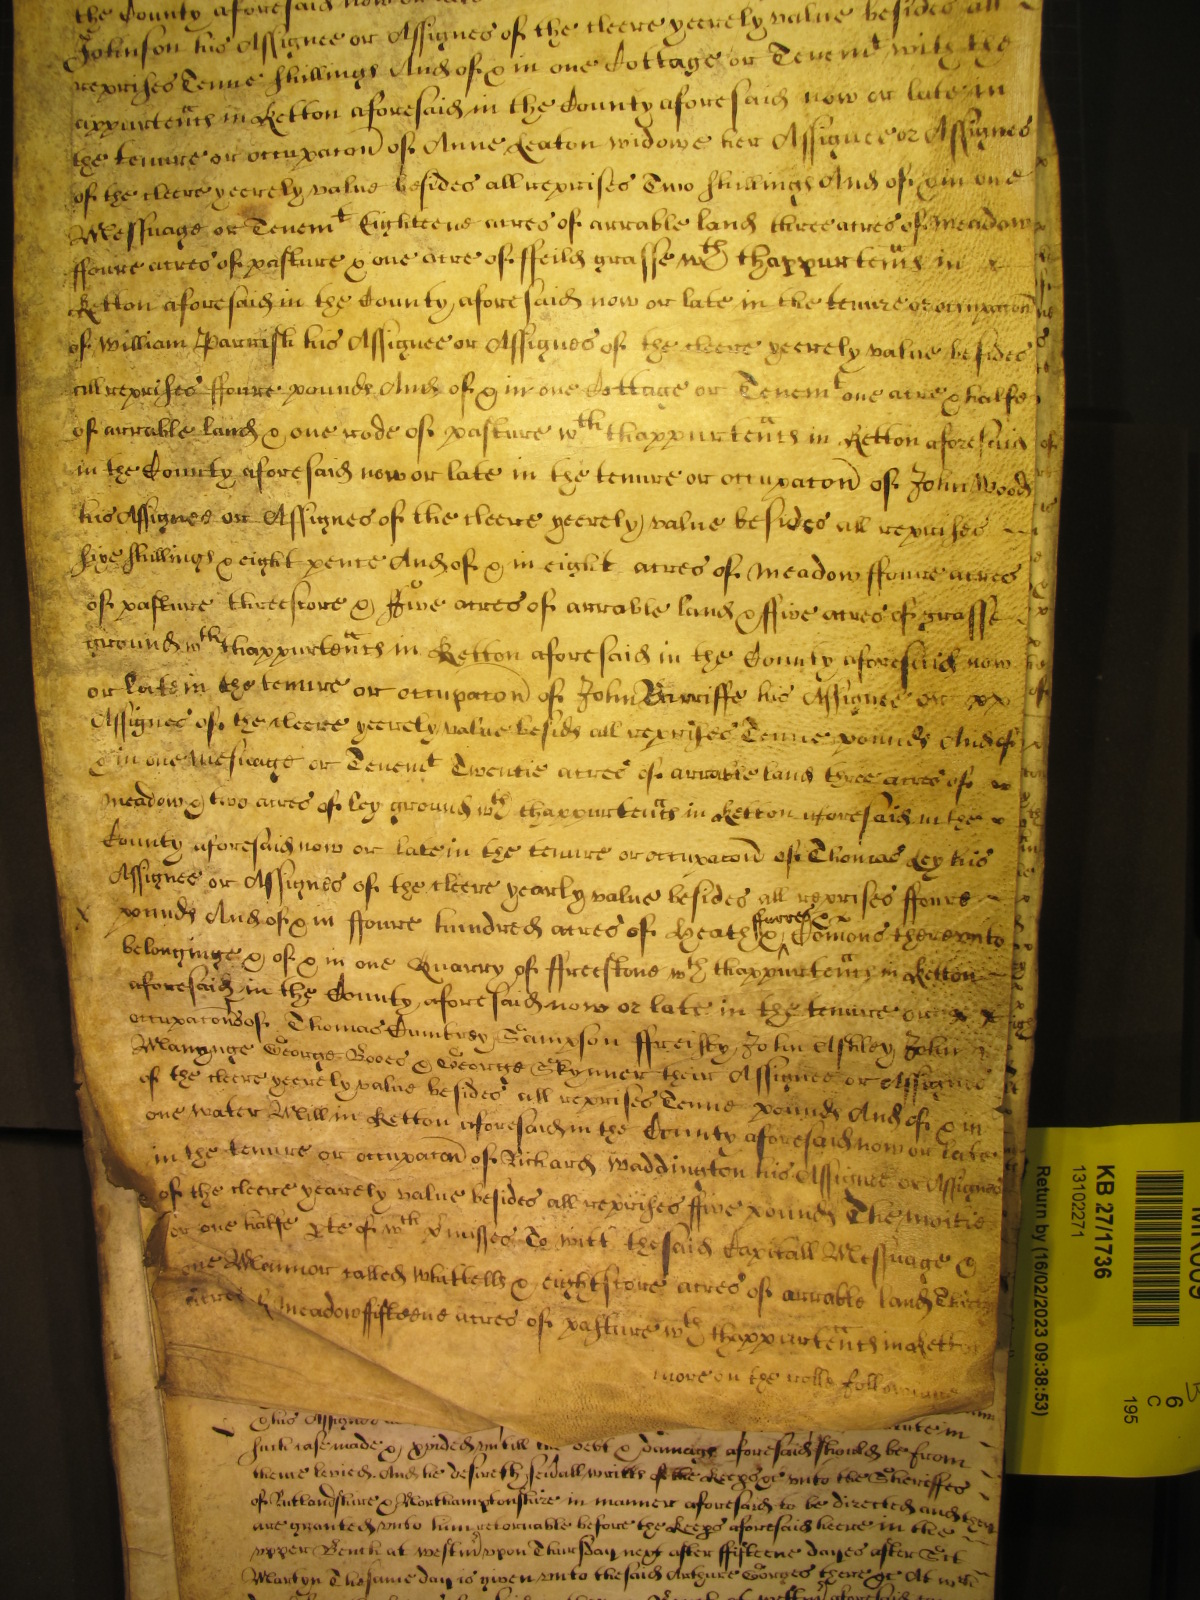 the County aforesaid now or late
Johnson his Assignee or Assignes of the cleere yeerely value besides all
reprises Tenne shillings And of & in one Cottage or Tenemt with the
appurtents in Ketton aforesaid in the County aforesaid now or late in
the tenure or occupaton of Anne Leaton widowe her Assignee or Assignes
of the cleere yeerely value besides all reprises Two shillings And of & in one
Messuage or Tenemt Eighteene acres of arrable land three acres of meadow
ffoure acres of pasture & one acre of ffeild grasse wth thappurtents in
Ketton aforesaid in the County aforesaid now or late in the tenure or occupaton
of William Parrish his Assignee or Assignes of the cleere yeerely value besides
all reprises ffoure pounds And of & in one Cottage or Tenemt one acre & halfe
of arrable land & one rode of pasture wth thappurtents in Ketton aforesaid
in the County aforesaid now or late in the tenure or occupaton of John Wood
his Assignee or Assignes of the cleere yeerely value besides all reprises
sixe shillings & eight pence And of & in eight acres of meadow ffoure acres
of pasture threescore & ffive acres of arrable land & ffive acres of grasse
ground wth thappurtents in Ketton aforesaid in the County aforesaid now
or late in the tenure or occupaton of John Barriffe his Assignee or
Assignes of the cleere yeerely value besids all reprises Tenne pounds And of
& in one Messuage or Tenemt Twentie acres of arrable land three acres of
meadow & two acres of ley ground wth thappurtents in Ketton aforesaid in the
County aforesaid now or late in the tenure or occupaton of Thomas Ley his
Assignee or Assignes of the cleere yearly value besides all reprises ffoure
pounds And of & in ffoure hundred acres of Heath furres & Comons thereunto
belonginge & of & in one Quarry of ffreestone wth thappurtents in Ketton
aforesaid in the County aforesaid now or late in the tenure or
occupatons of Thomas Sampson John Ashley John
Manynge George Booes & George Skynner their Assignee or Assignes
of the cleere yeerely value besides all reprises Tenne pounds And of & in
one water Mill in Ketton aforesaid in the County aforesaid now or late
in the tenure or occupaton of Richard Waddington his Assignee or Assignes
of the cleere yearely value besides all reprises ffive pounds The moitie
or one halfe pte of wch pmisses To witt the said Capitall Messuage &
one Mannor called Whittells & eightscore acres of arrable land
acres of meadow ffifteene acres of pasture wth thappurtents in Ketton
more on the rolle followinge
his Assignes
such case made & pvided untill the debt & damage aforesaid should be from
thence levied. And he desireth seidall writts of the Keeps &c unto the Sherriffes
of Rutlandshire & Northamptonshire in manner aforesaid to be directed and they
are granted unto him retornable before the Keeps aforesaid heere in the
upper Bench at Westmr upon Thursday next after ffifteene dayes after St
Martyn The same day is given unto the said Arthure Gorges there &c At wch
KB 27/1736
13102271
Return by (16/02/2023 09:38:53)
6
C
195